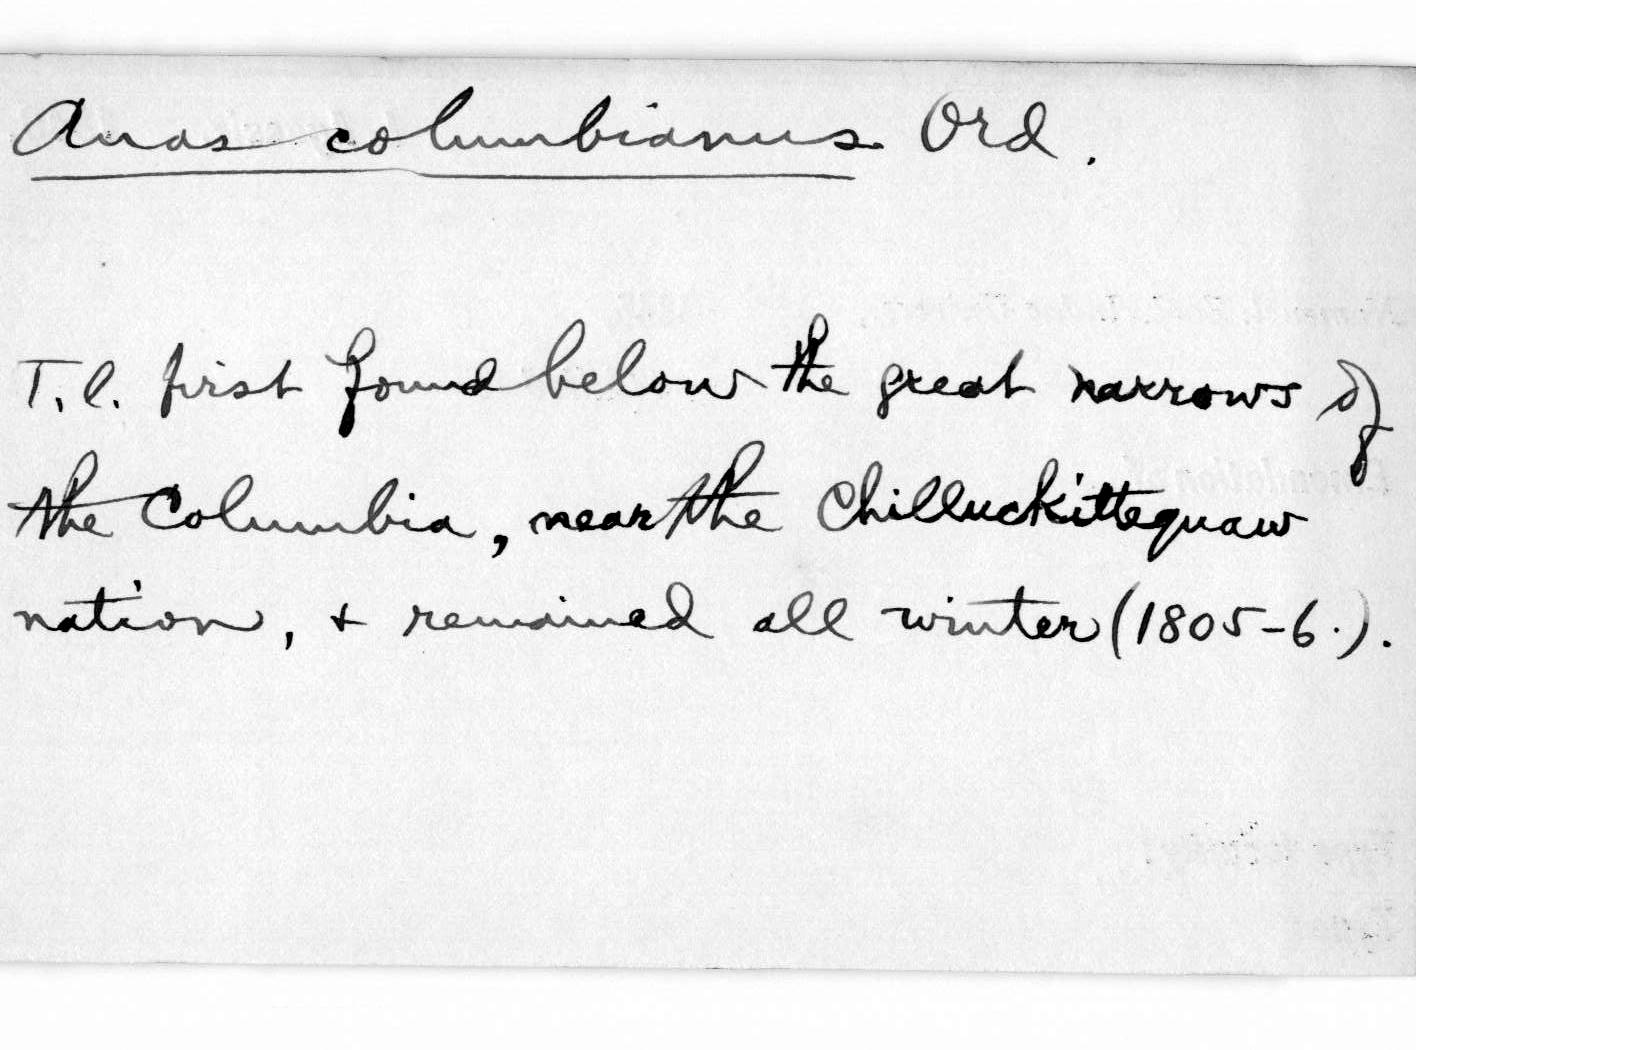 Anas columbianus Ord.
T.l. first found below the great narrows of
the Columbia, near the Chilluckittequaw
nation, + remained all winter (1805-6.).